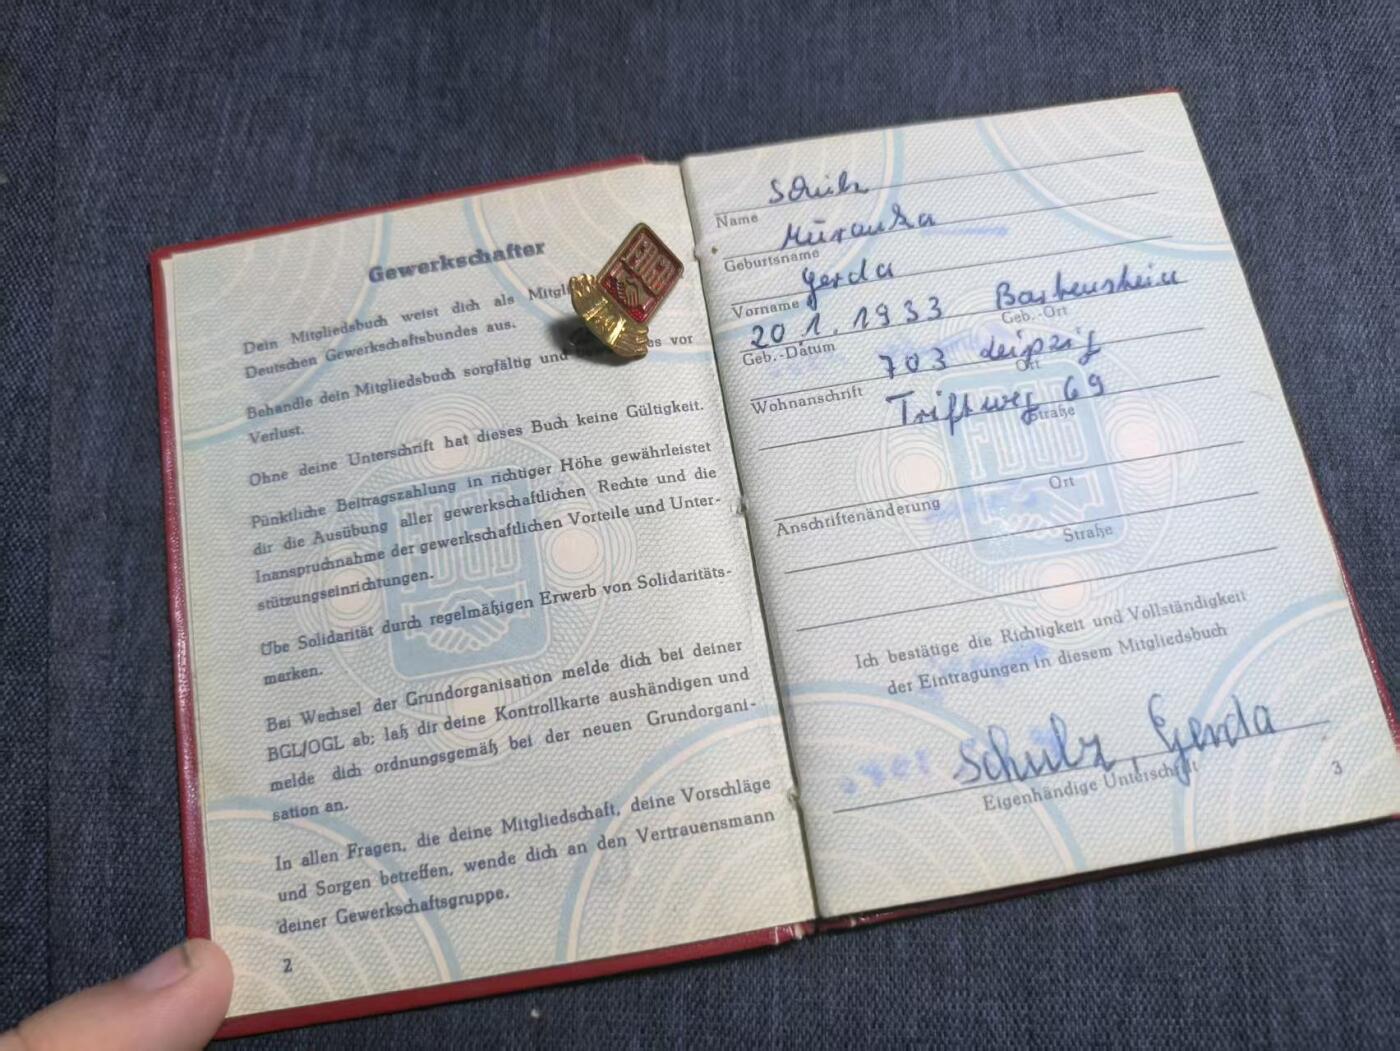 Gewerkschafter
Dein Mitgliedsbuch weist dich als
Deutschen Gewerkschaftsbundes aus.
Behandle dein Mitgliedsbuch sorgfältig und es vor
Verlust.
Ohne deine Unterschrift hat dieses Buch keine Gültigkeit.
Pünktliche Beitragszahlung in richtiger Höhe gewährleistet
dir die Ausübung aller gewerkschaftlichen Rechte und die
Inanspruchnahme der gewerkschaftlichen Vorteile und Unter-
stützungseinrichtungen.
Übe Solidarität durch regelmäßigen Erwerb von Solidaritäts-
marken.
Bei Wechsel der Grundorganisation melde dich bei deiner
BGL/OGL ab; laß dir deine Kontrollkarte aushändigen und
melde dich ordnungsgemäß bei der neuen Grundorgani-
sation an.
In allen Fragen, die deine Mitgliedschaft, deine Vorschläge
und Sorgen betreffen, wende dich an den Vertrauensmann
deiner Gewerkschaftsgruppe.
2
FDGB
FDGB
Schulz
Name
Geburtsname
Gerda
Vorname
20.1.1933 Bartenstein
Geb.-Datum Geb.-Ort
703 Leipzig
Wohnanschrift Ort
Triftweg 69
Straße
Ort
Anschriftenänderung
Straße
FDGB
Ich bestätige die Richtigkeit und Vollständigkeit
der Eintragungen in diesem Mitgliedsbuch
Schulz, Gerda
Eigenhändige Unterschrift
3